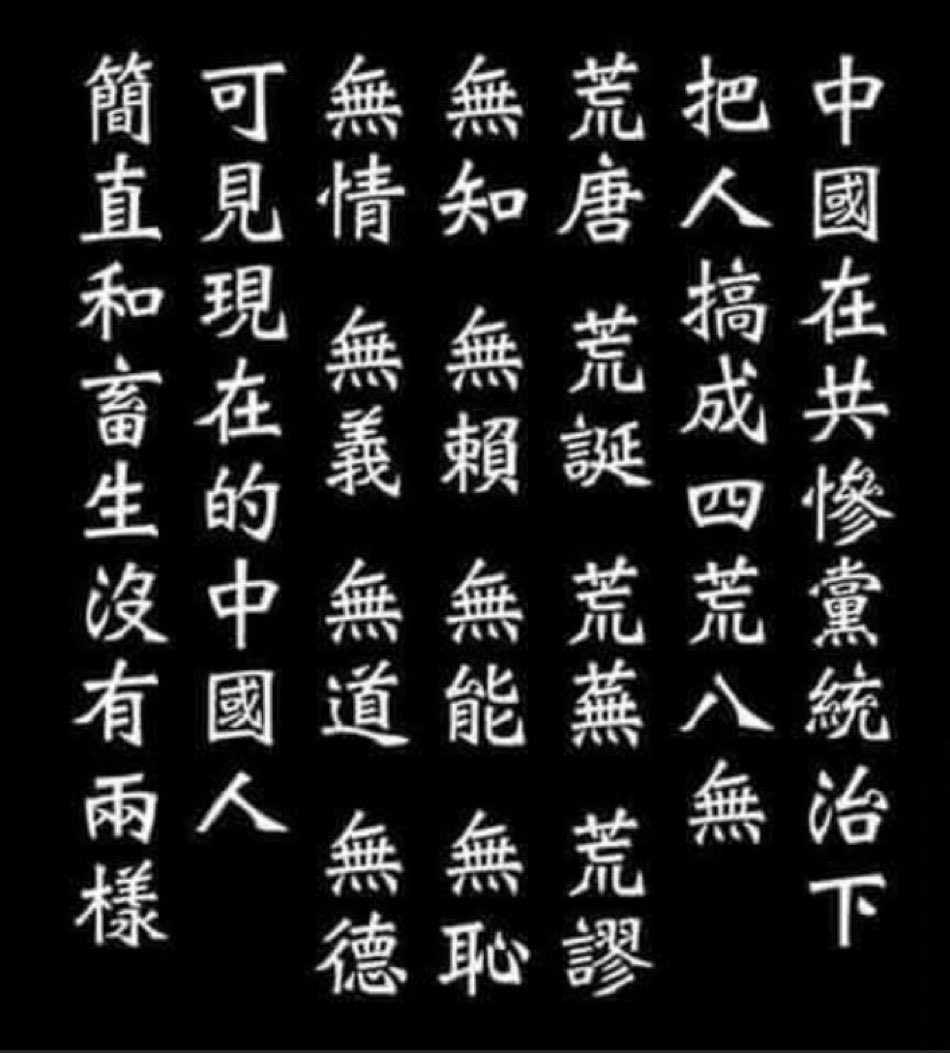 中國在共慘黨統治下
把人搞成四荒八無
荒唐 荒誕 荒蕪 荒謬
無知 無賴 無能 無恥
無情 無義 無道 無德
可見現在的中國人
簡直和畜生沒有兩樣